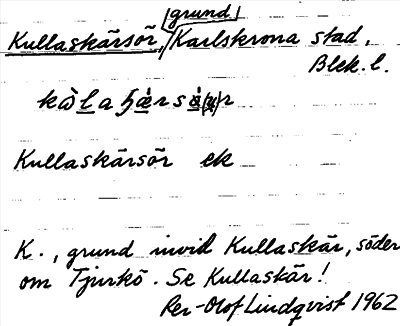 grund
Kullaskärsör, Karlskrona stad.
Blek. l.
Kullaskärsör ek
K., grund invid Kullaskär, söder
om Tjurkö. Se Kullaskär!
Per-Olof Lindqvist 1962